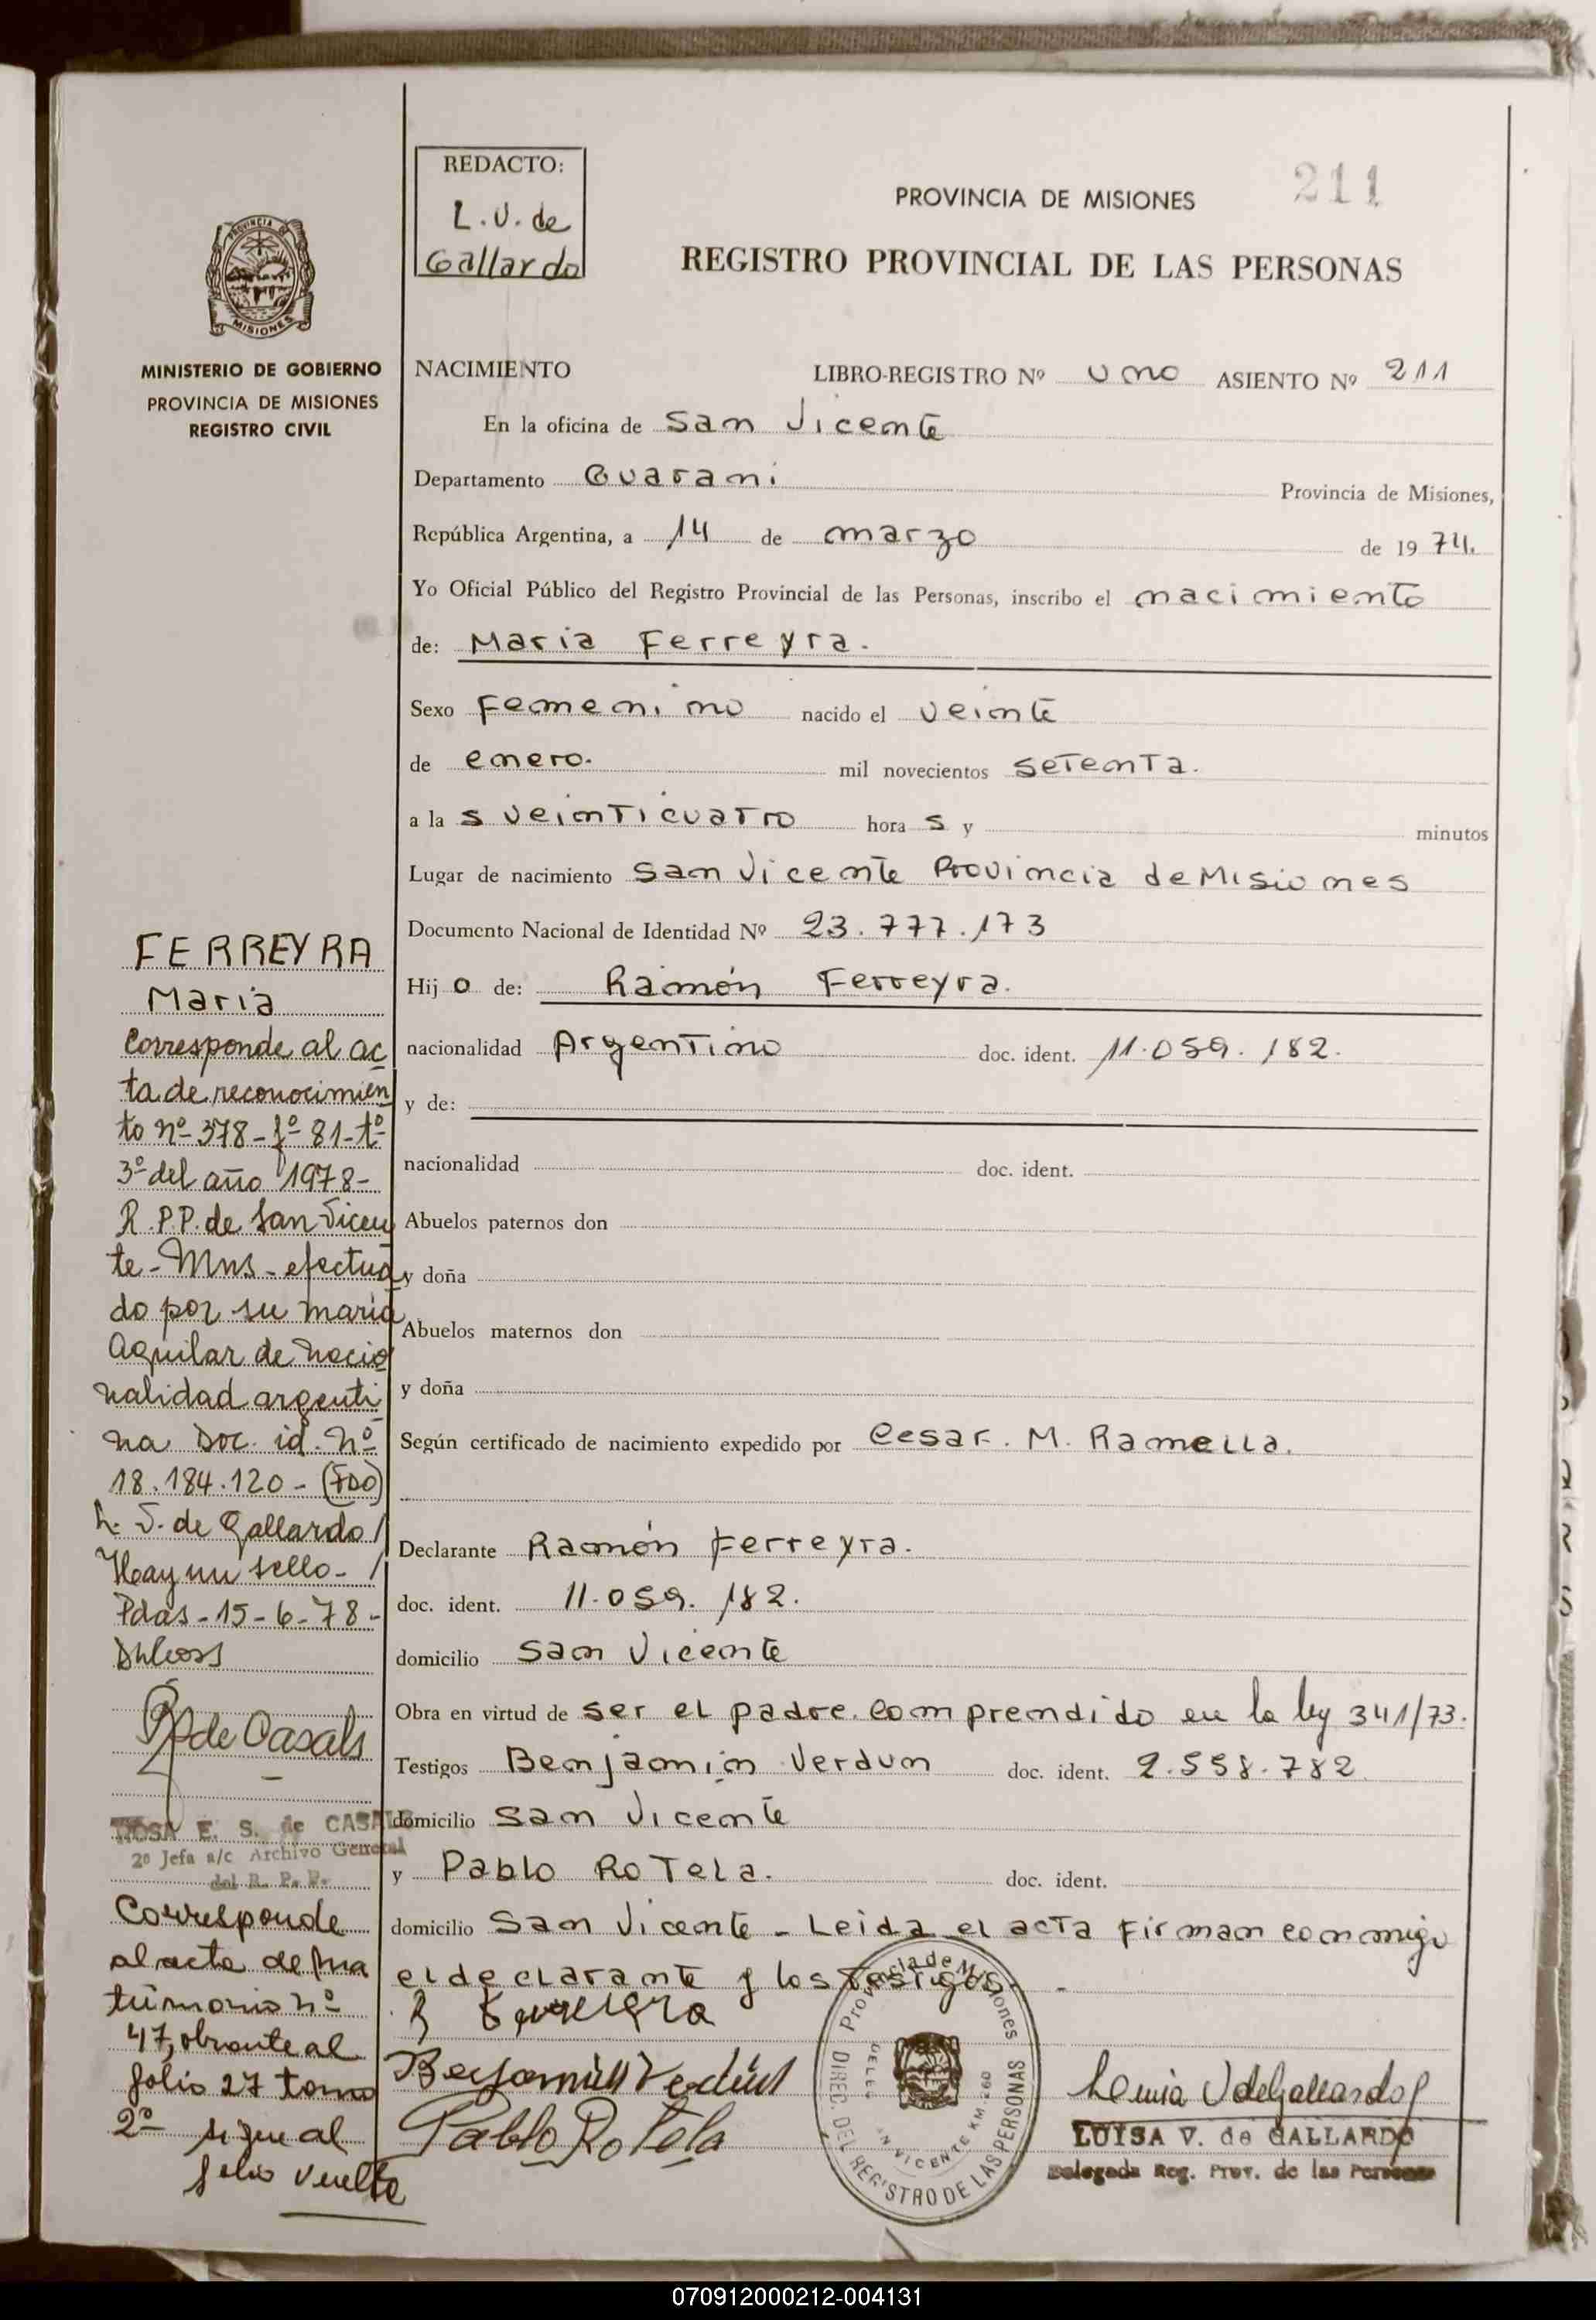 REDACTO:
L.V. de
Gallardo
PROVINCIA DE MISIONES
211
REGISTRO PROVINCIAL DE LAS PERSONAS
PROVINCIA DE
MISIONES
MINISTERIO DE GOBIERNO
PROVINCIA DE MISIONES
REGISTRO CIVIL
NACIMIENTO LIBRO-REGISTRO Nº uno ASIENTO Nº 211
En la oficina de San Vicente
Departamento Guarani Provincia de Misiones,
República Argentina, a 14 de marzo de 1974.
Yo Oficial Público del Registro Provincial de las Personas, inscribo el nacimiento
de: Maria Ferreyra.
Sexo Femenino nacido el veinte
de enero. mil novecientos setenta.
a las veinticuatro horas y minutos
Lugar de nacimiento San Vicente Provincia de Misiones
Documento Nacional de Identidad Nº 23.777.173
Hijo de: Ramón Ferreyra.
nacionalidad Argentino doc. ident. 11.059.182.
y de:
nacionalidad doc. ident.
Abuelos paternos don
y doña
Abuelos maternos don
y doña
Según certificado de nacimiento expedido por Cesar. M. Ramella.
Declarante Ramón Ferreyra.
doc. ident. 11.059.182.
domicilio San Vicente
Obra en virtud de ser el padre. comprendido en la ley 341/73.
Testigos Benjamin Verdun doc. ident. 2.558.782
domicilio San Vicente
y Pablo Rotela. doc. ident.
domicilio San Vicente - Leida el acta firman conmigo
el declarante y los testigos. -
R Ferreyra
Benjamin Verdun
Pablo Rotela
Provincia de Misiones
DIREC. DEL REGISTRO DE LAS PERSONAS
SAN VICENTE KM. 260
Luisa V de Gallardo
LUISA V. de GALLARDO
Delegada Reg. Prov. de las Personas
FERREYRA
Maria
Corresponde al ac
ta de reconocimien
to nº 378 - fº 81 - tº
3º del año 1978 -
R.P.P. de San Vicen
te - Mns - efectua
do por su maria
Aguilar de nacio
nalidad argenti
na Doc. id. nº
18.184.120 - (FDO)
L. V. de Gallardo /
Hay un sello - /
Pdas - 15 - 6 - 78 -
R de Casals
ROSA E. S. de CASALS
2º Jefa a/c Archivo General
del R. P. P.
Corresponde
al acta de ma
trimonio nº
47, obrante al
folio 27 tomo
2º sigue al
folio vuelto
070912000212-004131